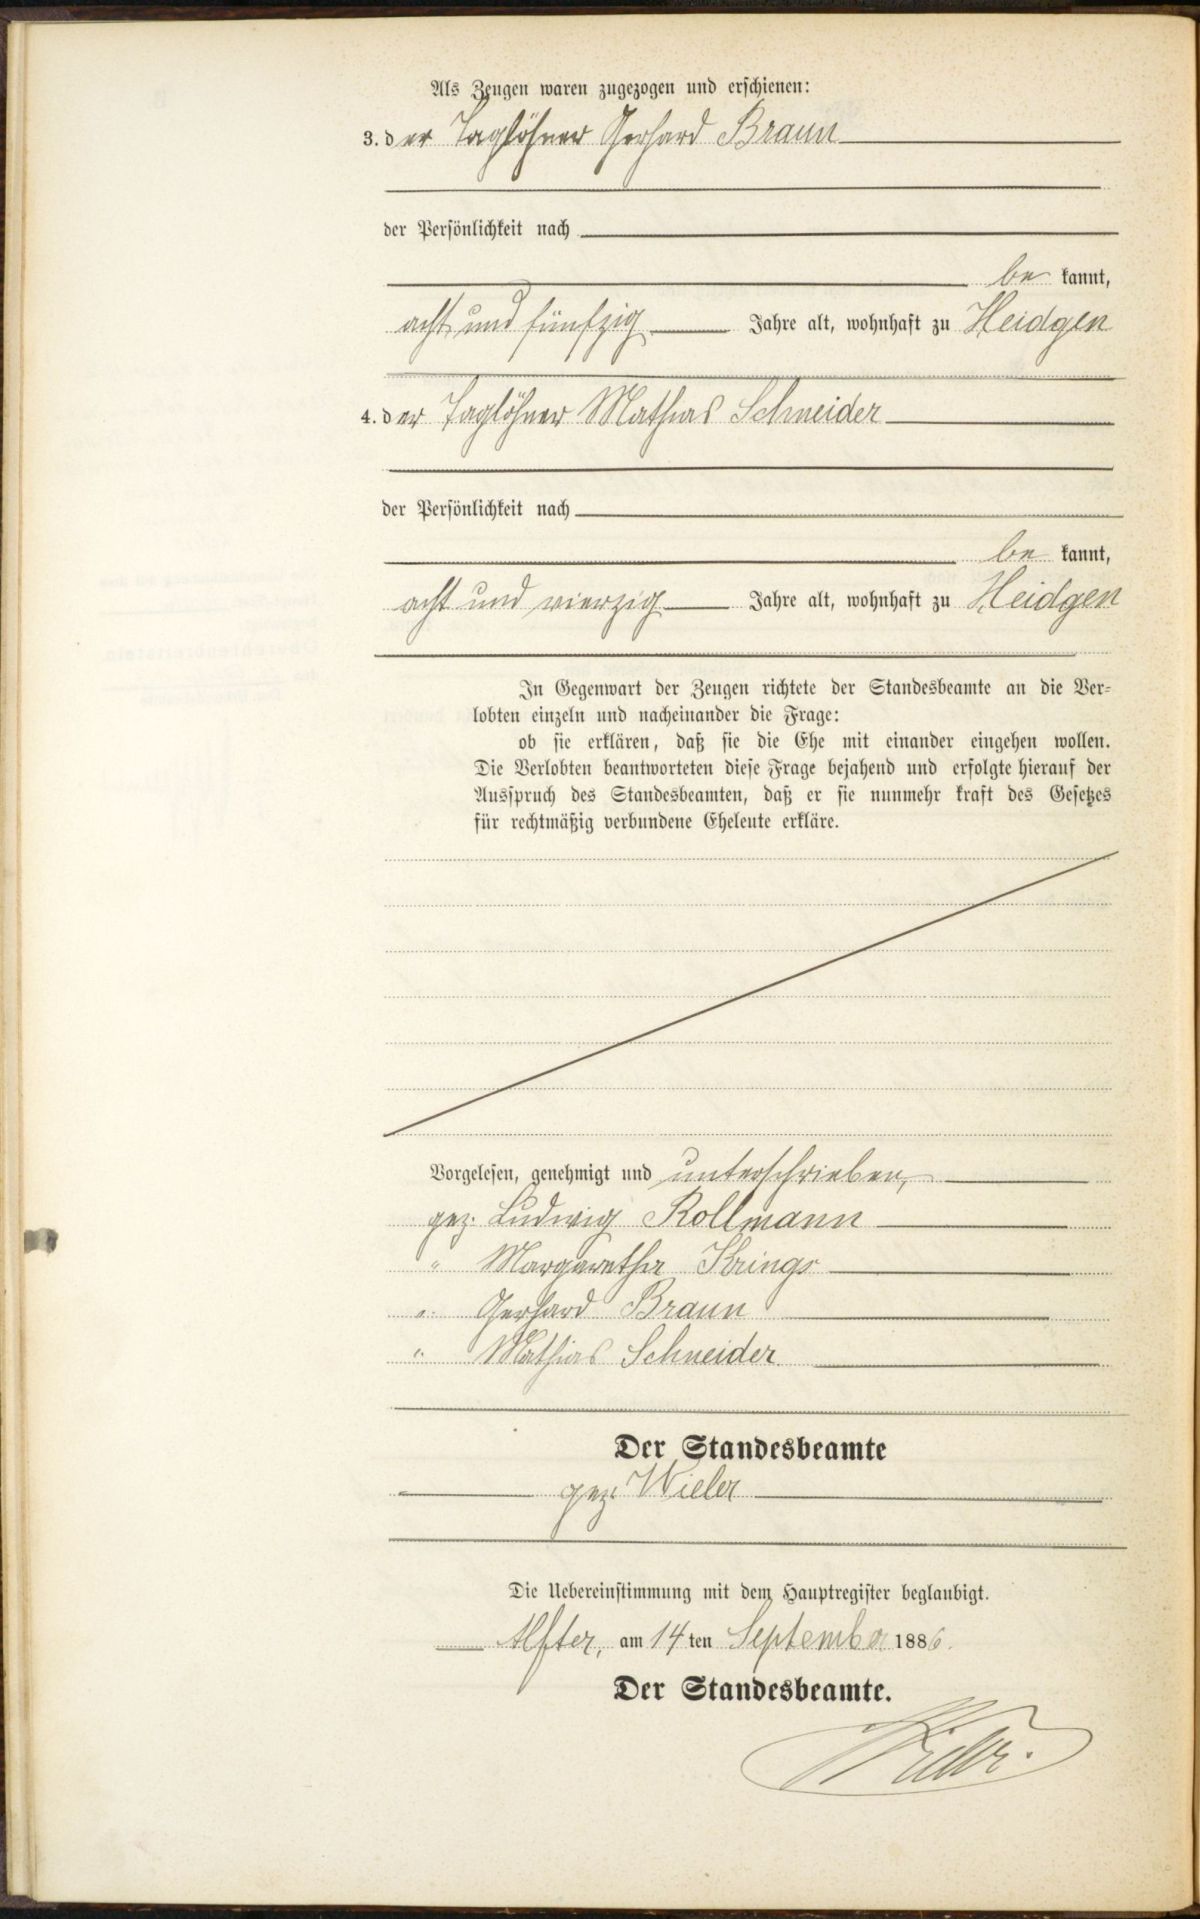 Als Zeugen waren zugezogen und erschienen:
3. der Taglöhner Gerhard Braun
der Persönlichkeit nach
be kannt,
acht und fünfzig Jahre alt, wohnhaft zu Heidgen
4. der Taglöhner Mathias Schneider
der Persönlichkeit nach
be kannt,
acht und vierzig Jahre alt, wohnhaft zu Heidgen
In Gegenwart der Zeugen richtete der Standesbeamte an die Ver-
lobten einzeln und nacheinander die Frage:
ob sie erklären, daß sie die Ehe mit einander eingehen wollen.
Die Verlobten beantworteten diese Frage bejahend und erfolgte hierauf der
Ausspruch des Standesbeamten, daß er sie nunmehr kraft des Gesetzes
für rechtmäßig verbundene Eheleute erkläre.
Vorgelesen, genehmigt und unterschrieben,
gez. Ludwig Rollmann
" Margaretha Krings
" Gerhard Braun
" Mathias Schneider
Der Standesbeamte
gez. Wieler
Die Uebereinstimmung mit dem Hauptregister beglaubigt.
Alfter, am 14 ten September 1886.
Der Standesbeamte.
Wieler.